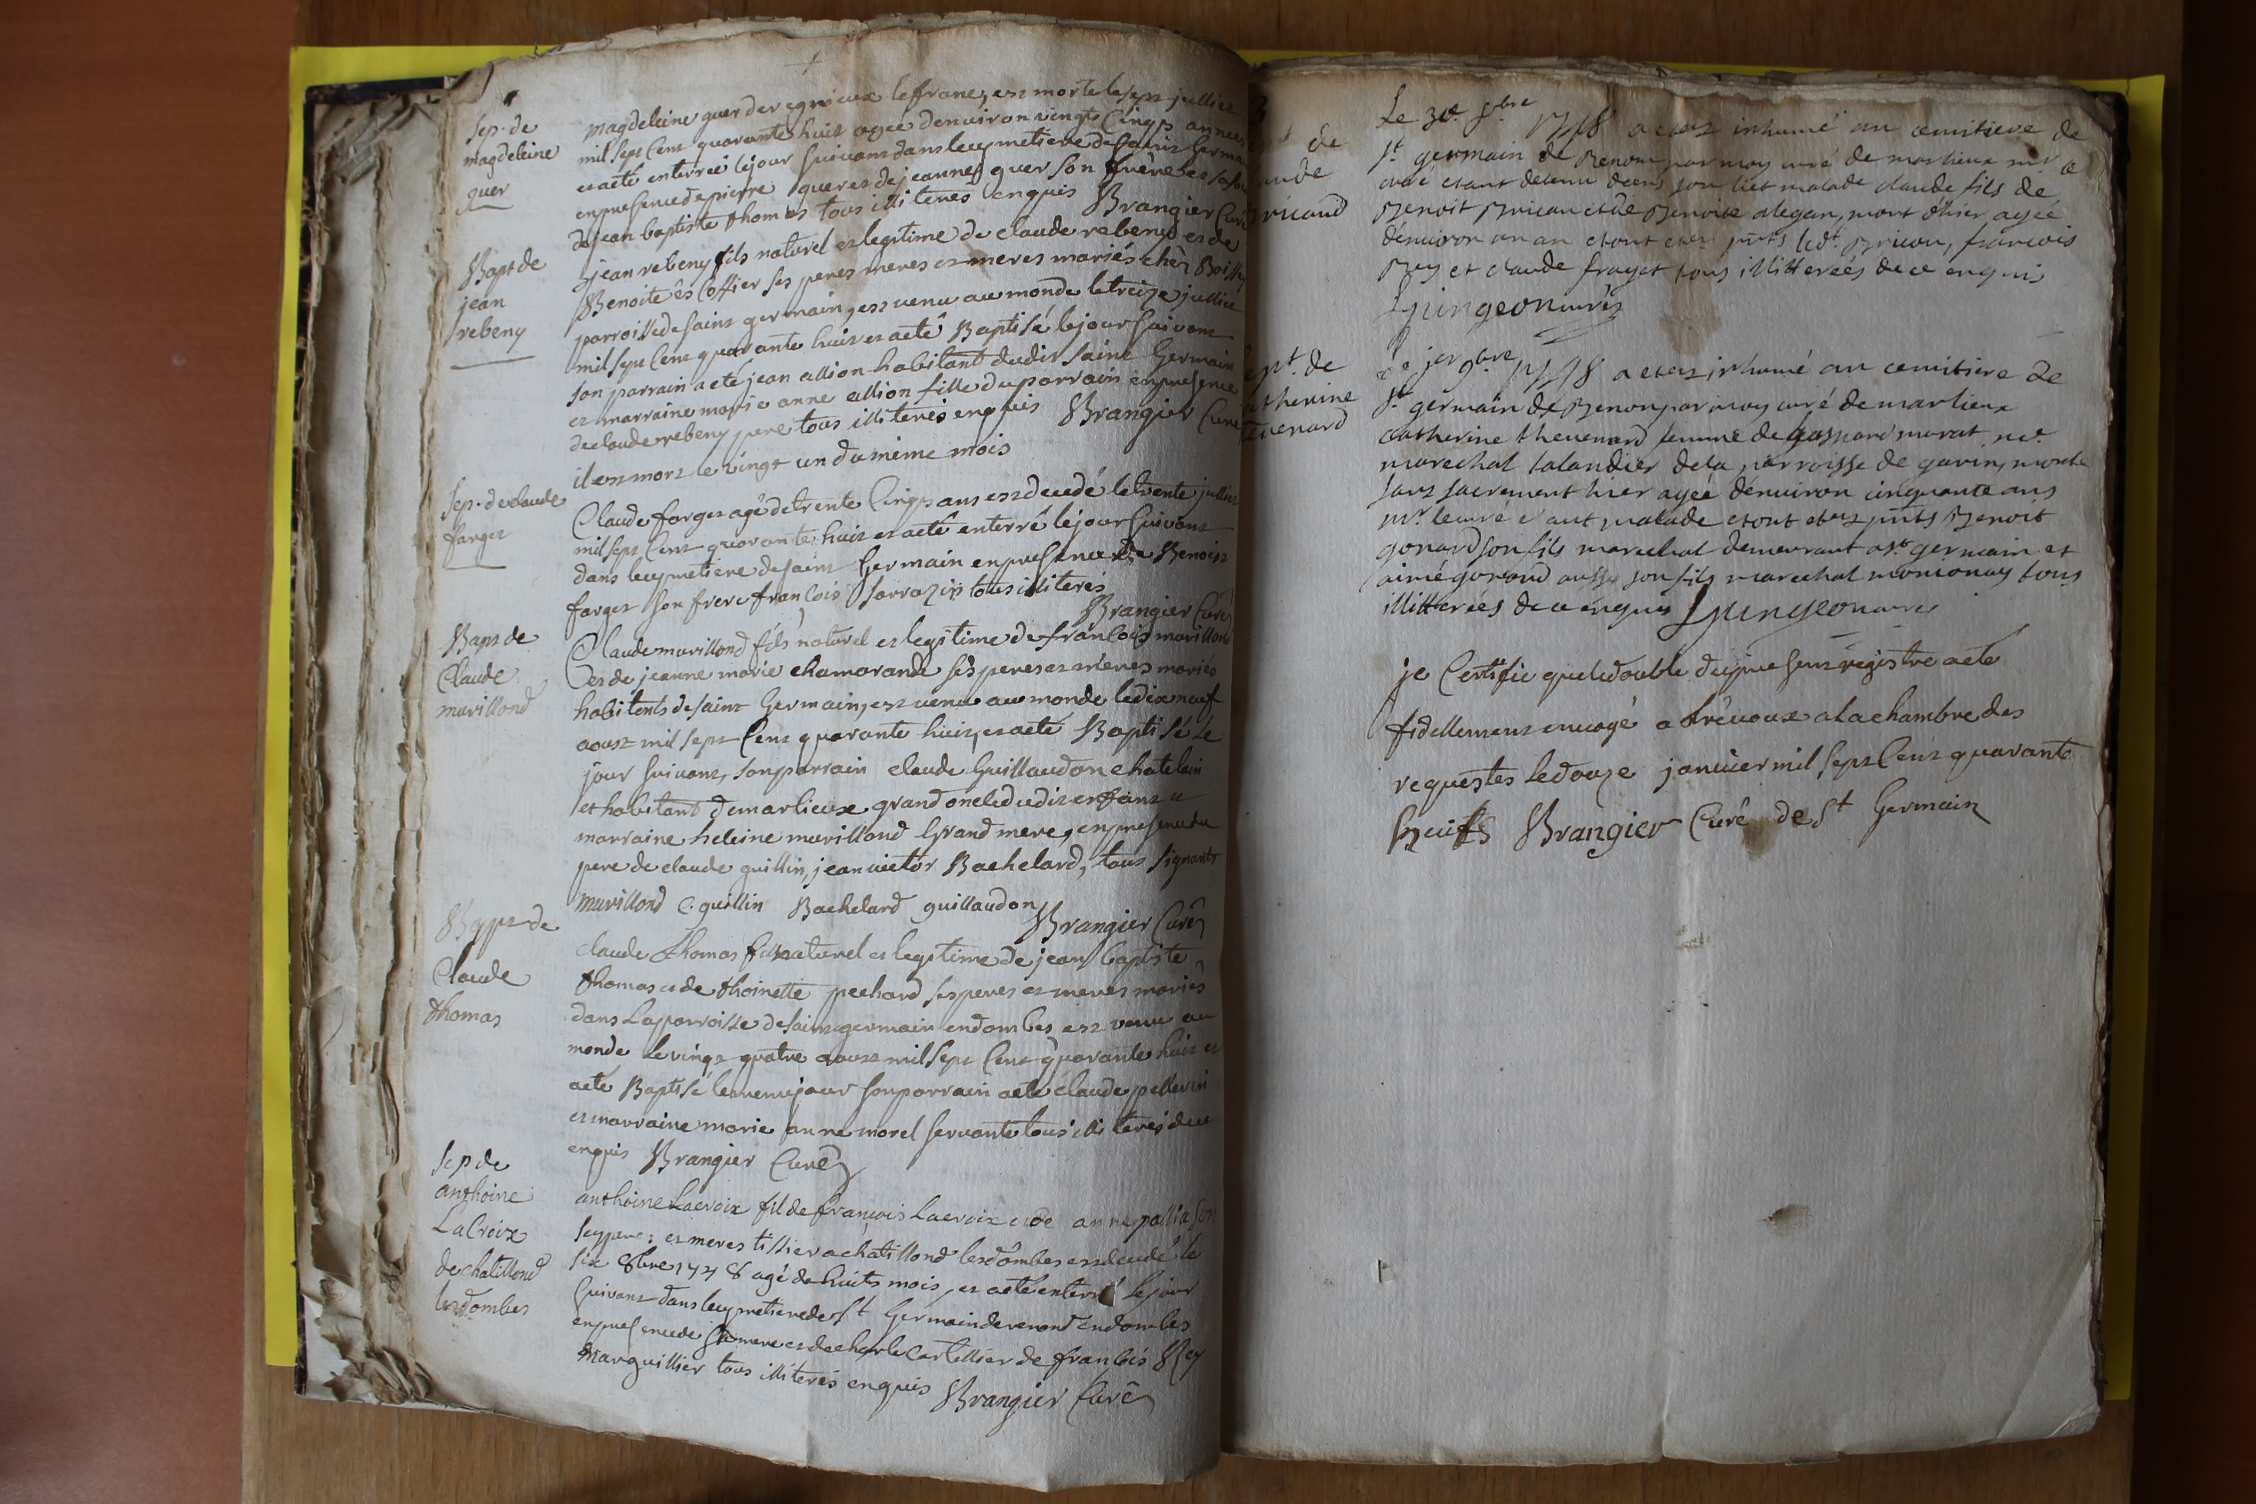 Sep. de
magdeleine
quer
magdeleine quer de regnieux le franc, est morte le sept juillet
mil sept Cent quarante huit agée denviron vingts Cinqs années
et a eté enterreé le jour suivant dans le cymetiere de saint Germain
en presence de pierre quer et de jeannes quer son frere et sa
de jean baptiste thomas tous illiterés enquis Brangier Curé
Bapt de
jean
rebeny
jean rebeny fils naturel et legitime de claude rebeny et de
Benoite Coffier ses peres meres et meres mariés chés
parroisse de saint germain, est venu au monde le treize juillet
mil sept Cent quarante huit et a eté Baptisé le jour suivant
son parrain a eté jean allion habitant dudit saint Germain
et marraine marie anne allion fille du parrain en presence
de claude rebeny pere tous illiterés enquis Brangier Curé
il est mort le vingt un du même mois
Sep. de claude
farget
Claude farget agé de trente Cinqs ans est decedé le trente juillet
mil sept Cent quarante huit et a eté enterré le jour suivant
dans le cymetiere de saint Germain en presence de Benoist
farget son frere francois sarrazin tous illiterés
Brangier Curé
Bapt de
Claude
murillond
Claude murillond fils naturel et legitime de francois murillond
et de jeanne marie chamarande ses peres et meres mariés
habitants de saint Germain, est venu au monde le dix neuf
aoust mil sept Cent quarante huit, et a eté Baptisé le
jour suivant, son parrain claude Guillaudon chatelain
et habitant de marlieux grand oncle dudit enffant et
marraine heleine murillond Grand mere, en presence du
pere de claude guillin, jean victor Bachelard, tous signants
murillond C. guillin Bachelard guillaudon
Brangier Curé
Bapt de
Claude
thomas
claude thomas fils naturel et legitime de jean baptiste
thomas et de thoinette pechard ses peres et meres mariés
dans la parroisse de saint germain en dombes est venu au
monde le vingt quatre aoust mil sept Cent quarante huit et
a eté Baptisé le meme jour son parrain a eté claude pellerin
et marraine marie anne morel servante tous illiterés de ce
enquis Brangier Curé
Sep de
anthoine
LaCroix
de chatillond
les dombes
anthoine Lacroix fil de françois Lacroix et de anne pallia
ses peres et meres tissier a chatillond les dombes est decedé le
six 8bre 1748 agé de huits mois, et a eté enterré le jour
suivant dans le cymetiere de St Germain de renond en dombes
en presence de sa mere et de charle cartillier de francois Rey
marguillier tous illiterés enquis Brangier Curé
de
aude
bricaud
Le 30e 8bre 1748 a etez inhumé au cemitiere de
St germain de Renom par moy curé de marlieux mr le
curé etant detenu dans son liet malade claude fils de
Benoit Bricau et de Benoite alegan, mort d'hier, ageé
d'environ un an etont etez pnts ledt Bricau, francois
Rey et claude frayet tous illitterées de ce enquis
Guingeon curé
Sept. de
catherine
thevenard
Le jer 9bre 1748 a etez inhumé au cemitiere de
St germain de Renon par moy curé de marlieux
catherine thevenard femme de gaspard morat, me
marechal talandier de la parroisse de gavin, morte
sans sacrement hier ageé d'environ cinquante ans
mr le curé etant malade etont etez pnts Benoit
gonard son fils marechal demeurant a st germain et
aimé gonard aussy son fils marechal monconay tous
illitterées de ce enquis Guingeon curé
je Certifie que le double du present registre a eté
fidellement envoyé a trévoux a la chambre des
requestes le douze janvier mil sept Cent quarante
neufs Brangier Curé de St Germain